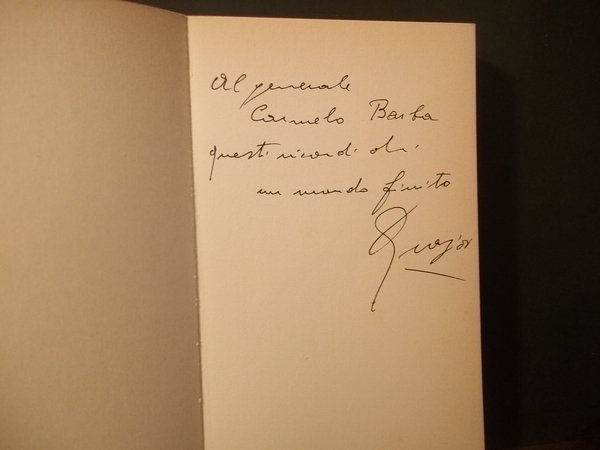 Al generale
Carmelo Barba
questi ricordi di
un mondo finito